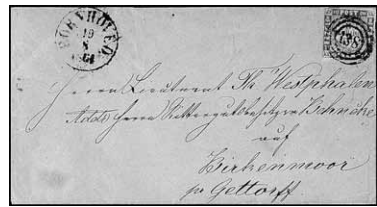 BORNHÖVED.
19
8
1864
138
Herrn Lieutenant Th. Westphalen
Adds Herrn Rittergutsbesitzer Schwche
auf
Birkenmoor
pr Gettorff